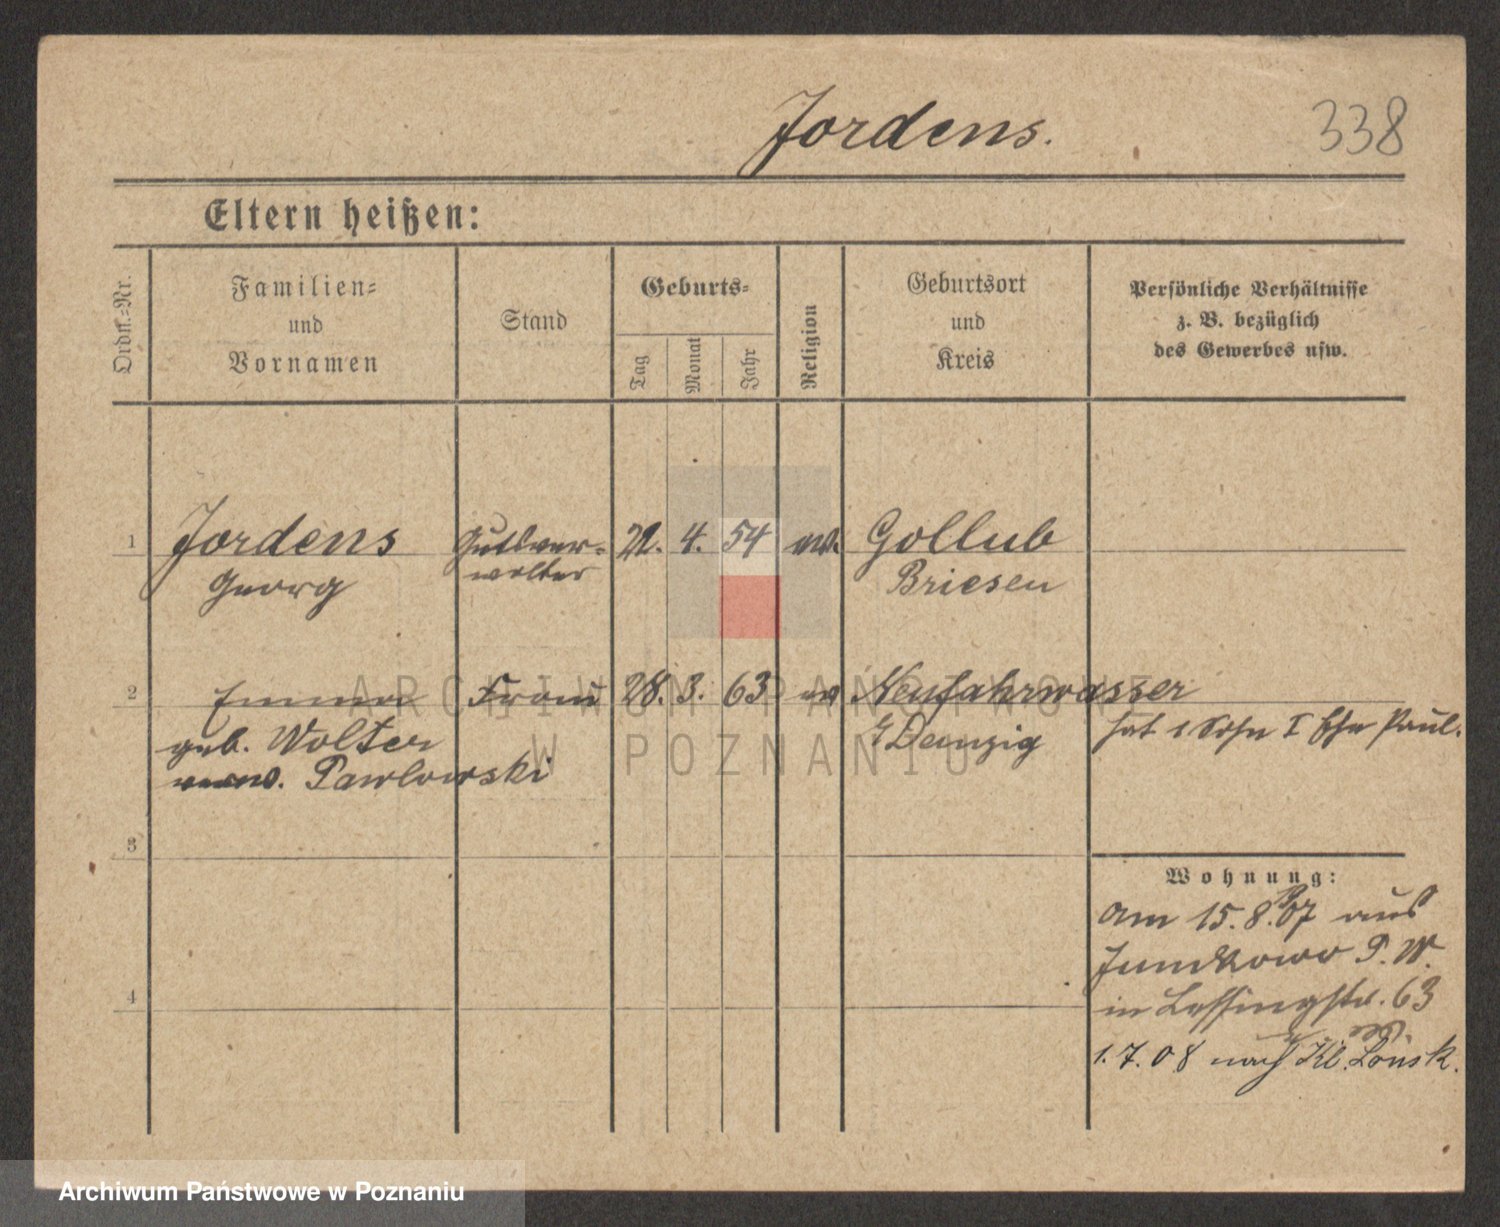 Jordens.
338
Eltern heißen:
Ordn.-Nr.
Familien-
und
Vornamen
Stand
Geburts-
Tag
Monat
Jahr
Religion
Geburtsort
und
Kreis
Persönliche Verhältnisse
z. B. bezüglich
des Gewerbes usw.
1
Jordens
Georg
Gutsver-
walter
22. 4. 54
ev.
Gollub
Briesen
2
Emma
geb. Wolter
verw. Pawlowski
Frau
28. 3. 63
ev
Neufahrwasser
Danzig
hat 1 Sohn I Ehe Paul.
3
4
Wohnung:
am 15.8.07 aus
Junikowo P. W.
in Lessingstr. 63
1.7.08 nach Kl. Lonsk.
ARCHIWUM PAŃSTWOWE
W POZNANIU
Archiwum Państwowe w Poznaniu